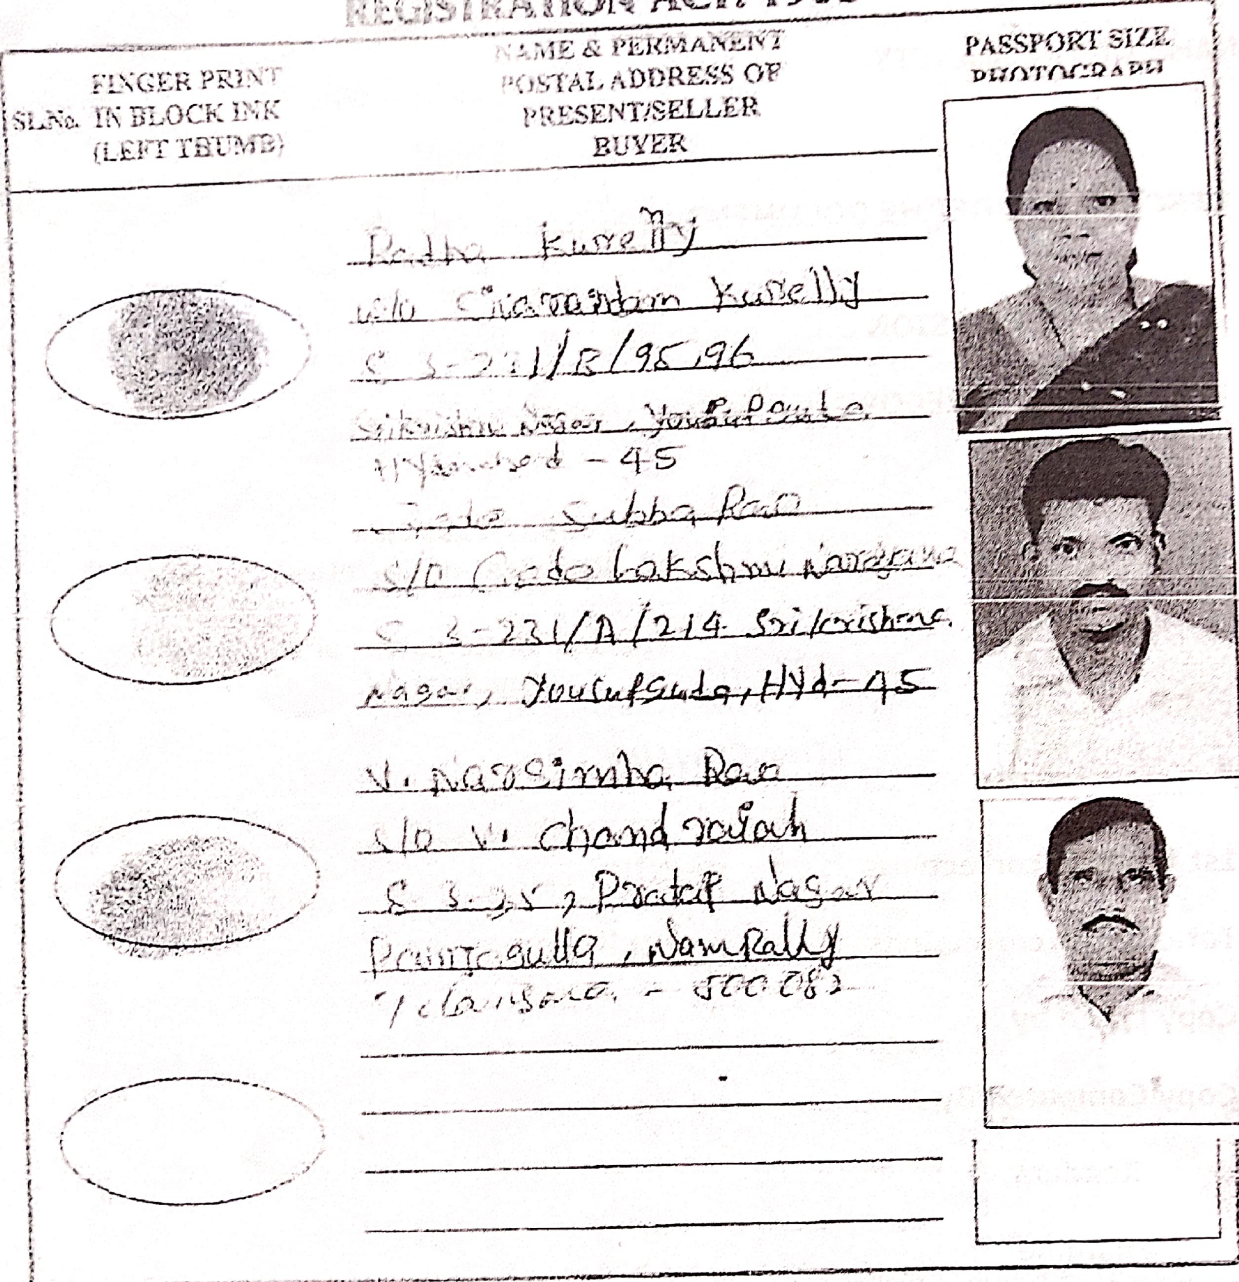 REGISTRATION ACT. 1908
SL.No. FINGER PRINT IN BLOCK INK (LEFT THUMB)
NAME & PERMANENT POSTAL ADDRESS OF PRESENT/SELLER BUYER
PASSPORT SIZE PHOTOGRAPH
Radha Kurrelly
W/o Sravantam Kurrelly
8-3-231/B/95,96
Srikrishna Nagar, Yousufguda
Hyderabad - 45
Subba Rao
S/o Gedo Lakshmi Narayana
8-3-231/A/214 Srikrishna
Nagar, Yousufguda, Hyd-45
V. Narsimha Rao
S/o V. Chandraiah
8-3- , Pratap Nagar
Panjagutta, Nampally
Telangana - 500 082